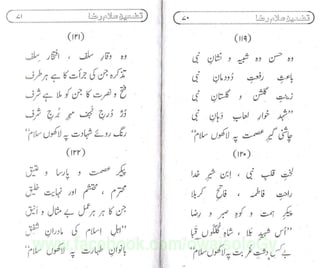 تضمین سلام رضا ۷۰
(۱۱۹)
وہ حسن وہ شبیہ و نشانِ نبی
باعثِ رفعتِ دُودمانِ نبی
زینتِ گلشن و گلستانِ نبی
"شہد خوارِ لعابِ زبانِ نبی
چاشنی گیرِ عصمت پہ لاکھوں سلام"
(۱۲۰)
لختِ قلبِ نبی ، ابنِ شیرِ خدا
راحتِ فاطمہ ، فاتحِ کربلا
پیکرِ ہمت و کوہِ صبر و رضا
"اُس شہیدِ بلا ، شاہِ گلگوں قبا
بے کسِ دشتِ غربت پہ لاکھوں سلام"
۷۱ تضمین سلام رضا
(۱۲۱)
وہ وقارِ سلف ، افتخارِ سلف
تذکرہ جن کی جرأت کا ہے ہر طرف
فتح و نصرت کا جن کو ملا ہے شرف
"دُرِّ دُرجِ نجف مہرِ بُرجِ شرف
رنگِ روئے شہادت پہ لاکھوں سلام"
(۱۲۲)
پیکرِ عصمت و پارسا و عتیق
محترم ، محتشم اور نہایت خلیق
جن کا ہر ہر عمل بے مثال و انیق
"اہلِ اسلام کی مادرانِ شفیق
بانوانِ طہارت پہ لاکھوں سلام"